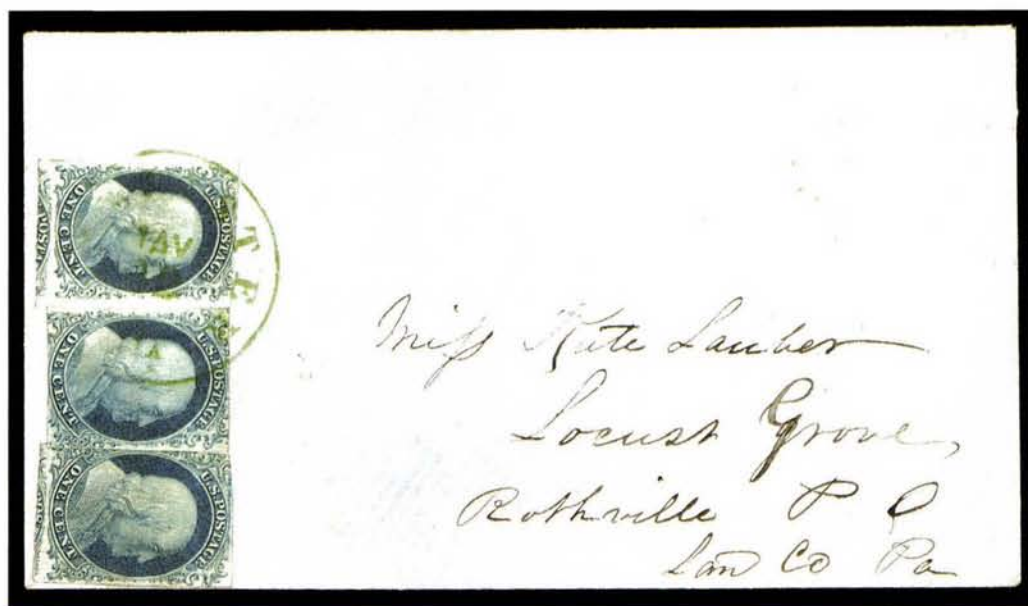 U.S. POSTAGE
ONE CENT.
U.S. POSTAGE
ONE CENT.
U.S. POSTAGE
ONE CENT.
Miss Kate Lauber
Locust Grove,
Rothville P O
Lan Co Pa